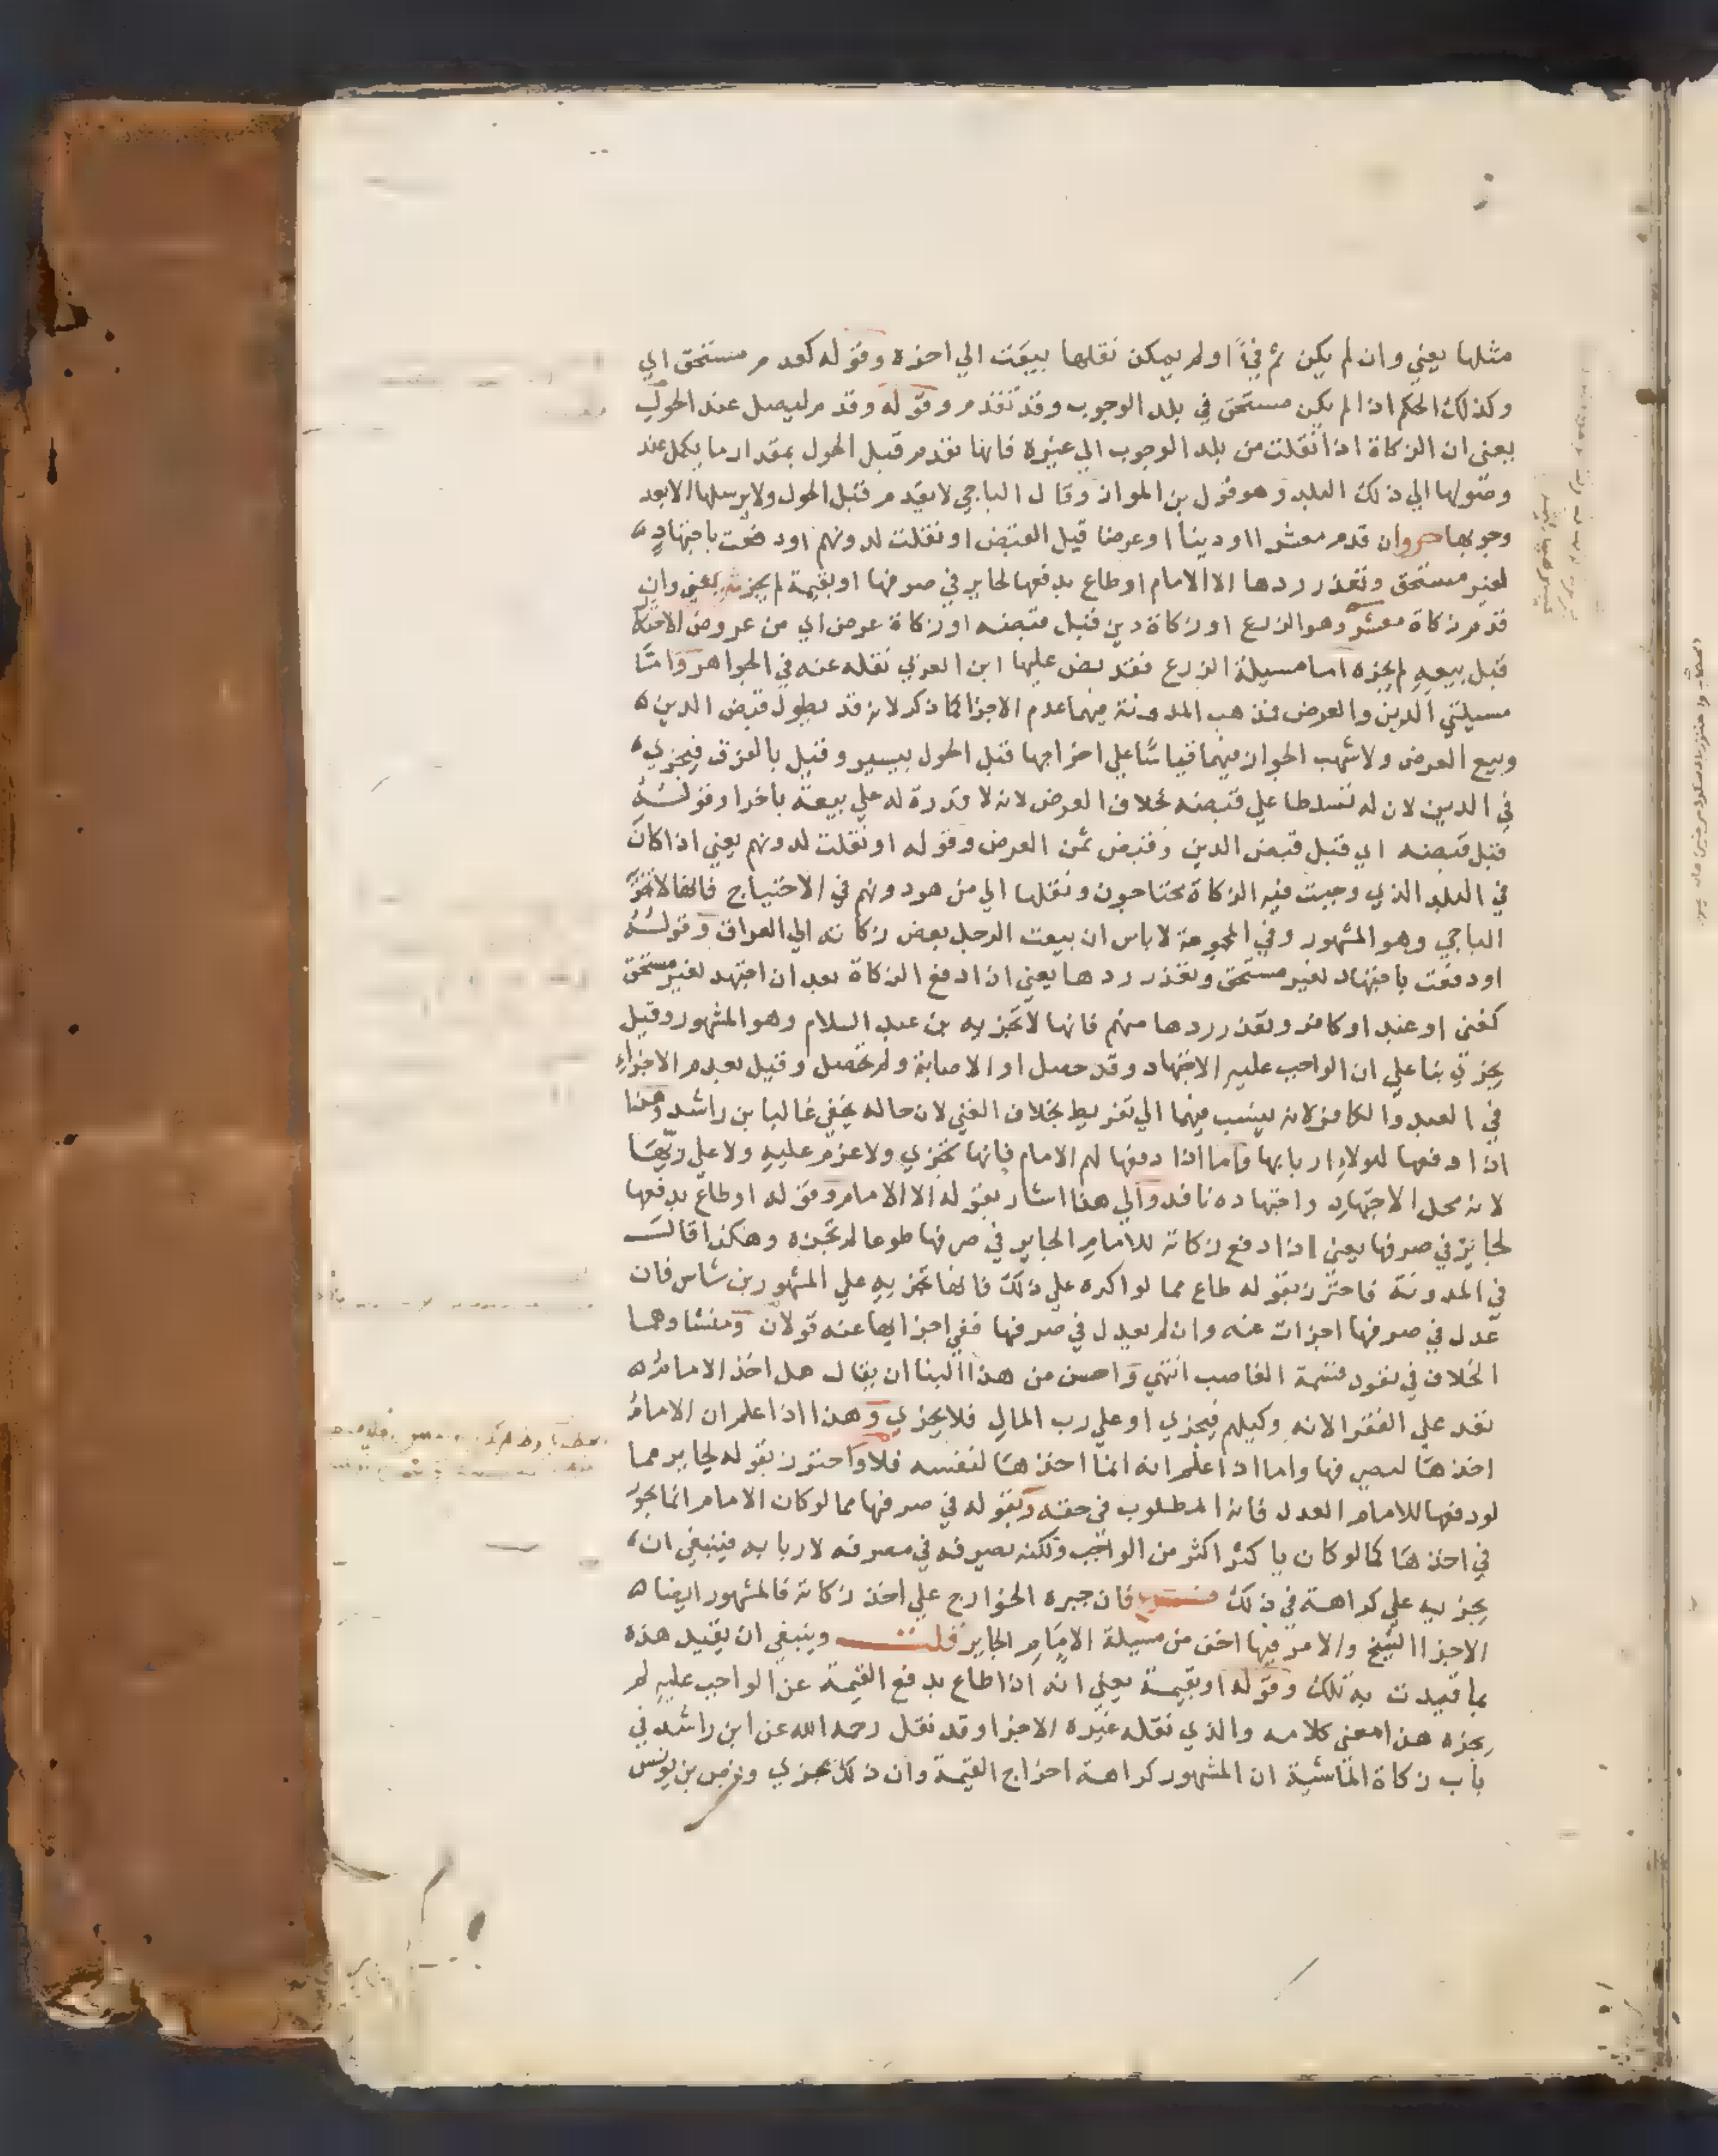 مثلها يعني وان لم يكن ثم فيء او لم يمكن نقلها بيعت الي اخره وقوله كعدم مستحق اي
وكذلك الحكم اذا لم يكن مستحق في بلد الوجوب وقد تقدم وقوله وقدم ليصل عند الحول
يعني ان الزكاة اذا نقلت من بلد الوجوب الي غيره فانها تقدم قبل الحول بمقدار ما يكمل عند
وصولها الي ذلك البلد وهو قول بن المواز وقال الباجي لا يقدم قبل الحول ولا يرسلها الا بعد
وجوبها ص وان قدم معشرا او دينا او عرضا قبل القبض او نقلت لدونهم او دفعت باجتهاد
لغير مستحق وتعذر ردها الا الامام او طاع بدفعها لجاير في صرفها او بقيمة لم يجز ش يعني وان
قدم زكاة معشر وهو الزرع او زكاة دين قبل قبضه او زكاة عرض اي من عروض الاحتكار
قبل بيعه لم يجزه اما مسيلة الزرع فقد نص عليها ابن العربي نقله عنه في الجواهر واما
مسيلتي الدين والعرض فمذهب المدونة فيهما عدم الاجزا كما ذكر لانه قد يطول قبض الدين
وبيع العرض ولاشهب الجواز فيهما قياسا علي اخراجها قبل الحول بيسير وقيل بالفرق فيجزي
في الدين لان له تسلطا علي قبضه بخلاف العرض لانه لا قدرة له علي بيعه باخرا وقوله
قبل قبضه اي قبل قبض الدين وقبض ثمن العرض وقوله او نقلت لدونهم يعني اذا كان
في البلد الذي وجبت فيه الزكاة محتاجون ونقلها الي من هو دونهم في الاحتياج فانها لا تجزي
الباجي وهو المشهور وفي المجموعة لا باس ان يبعث الرجل بعض زكاته الي العراق وقوله
او دفعت باجتهاد لغير مستحق وتعذر ردها يعني اذا دفع الزكاة بعد ان اجتهد لغير مستحق
كغني او عبد او كافر وتعذر ردها منهم فانها لا تجزيه بن عبد السلام وهو المشهور وقيل
يجزي بنا علي ان الواجب عليه الاجتهاد وقد حصل او الاصابة ولم تحصل وقيل بعدم الاجزاء
في العبد والكافر لانه ينسب فيهما الي تفريط بخلاف الغني لان حاله يخفي غالبا بن راشد وهذا
اذا دفعها لهولاء اربابها واما اذا دفعها لهم الامام فانها تجزي ولا غرم عليه ولا علي ربها
لانه محل الاجتهاد واجتهاده نافذ والي هذا اشار بقوله الا الامام وقوله او طاع بدفعها
لجاير في صرفها يعني اذا دفع زكاته للامام الجاير في صرفها طوعا لم تجزه وهكذا قال
في المدونة فاحترز بقوله طاع مما لو اكره علي ذلك فانها تجزيه علي المشهور بن شاس فان
عدل في صرفها اجزات عنه وان لم يعدل في صرفها ففي اجزايها عنه قولان ومنشاوهما
الخلاف في نفوذ قسمة الغاصب انتهي واحسن من هذا البنا ان يقال هل اخذ الامام
نفذ علي الفقرا لانه وكيلهم فيجزي او علي رب المال فلا يجزي وهذا اذا علم ان الامام
اخذها ليصرفها واما اذا علم انه انما اخذها لنفسه فلا واحترز بقوله لجاير مما
لو دفعها للامام العدل فانه المطلوب في حقه وبقوله في صرفها مما لو كان الامام انما يجور
في اخذها كما لو كان ياخذ اكثر من الواجب ولكنه يصرفه في مصرفه لاربابه فينبغي ان
يجزيه علي كراهة في ذلك فرع فان جبره الخوارج علي اخذ زكاته فالمشهور ايضا
الاجزا الشيخ والامر فيها اخف من مسيلة الامام الجاير قلت وينبغي ان تقيد هذه
بما قيدت به تلك وقوله او بقيمة يعني انه اذا طاع بدفع القيمة عن الواجب عليه لم
يجزه هذا معني كلامه والذي نقله غيره الاجزا وقد نقل رحمه الله عن ابن راشد في
باب زكاة الماشية ان المشهور كراهة اخراج القيمة وان ذلك مجزي ونص بن يونس